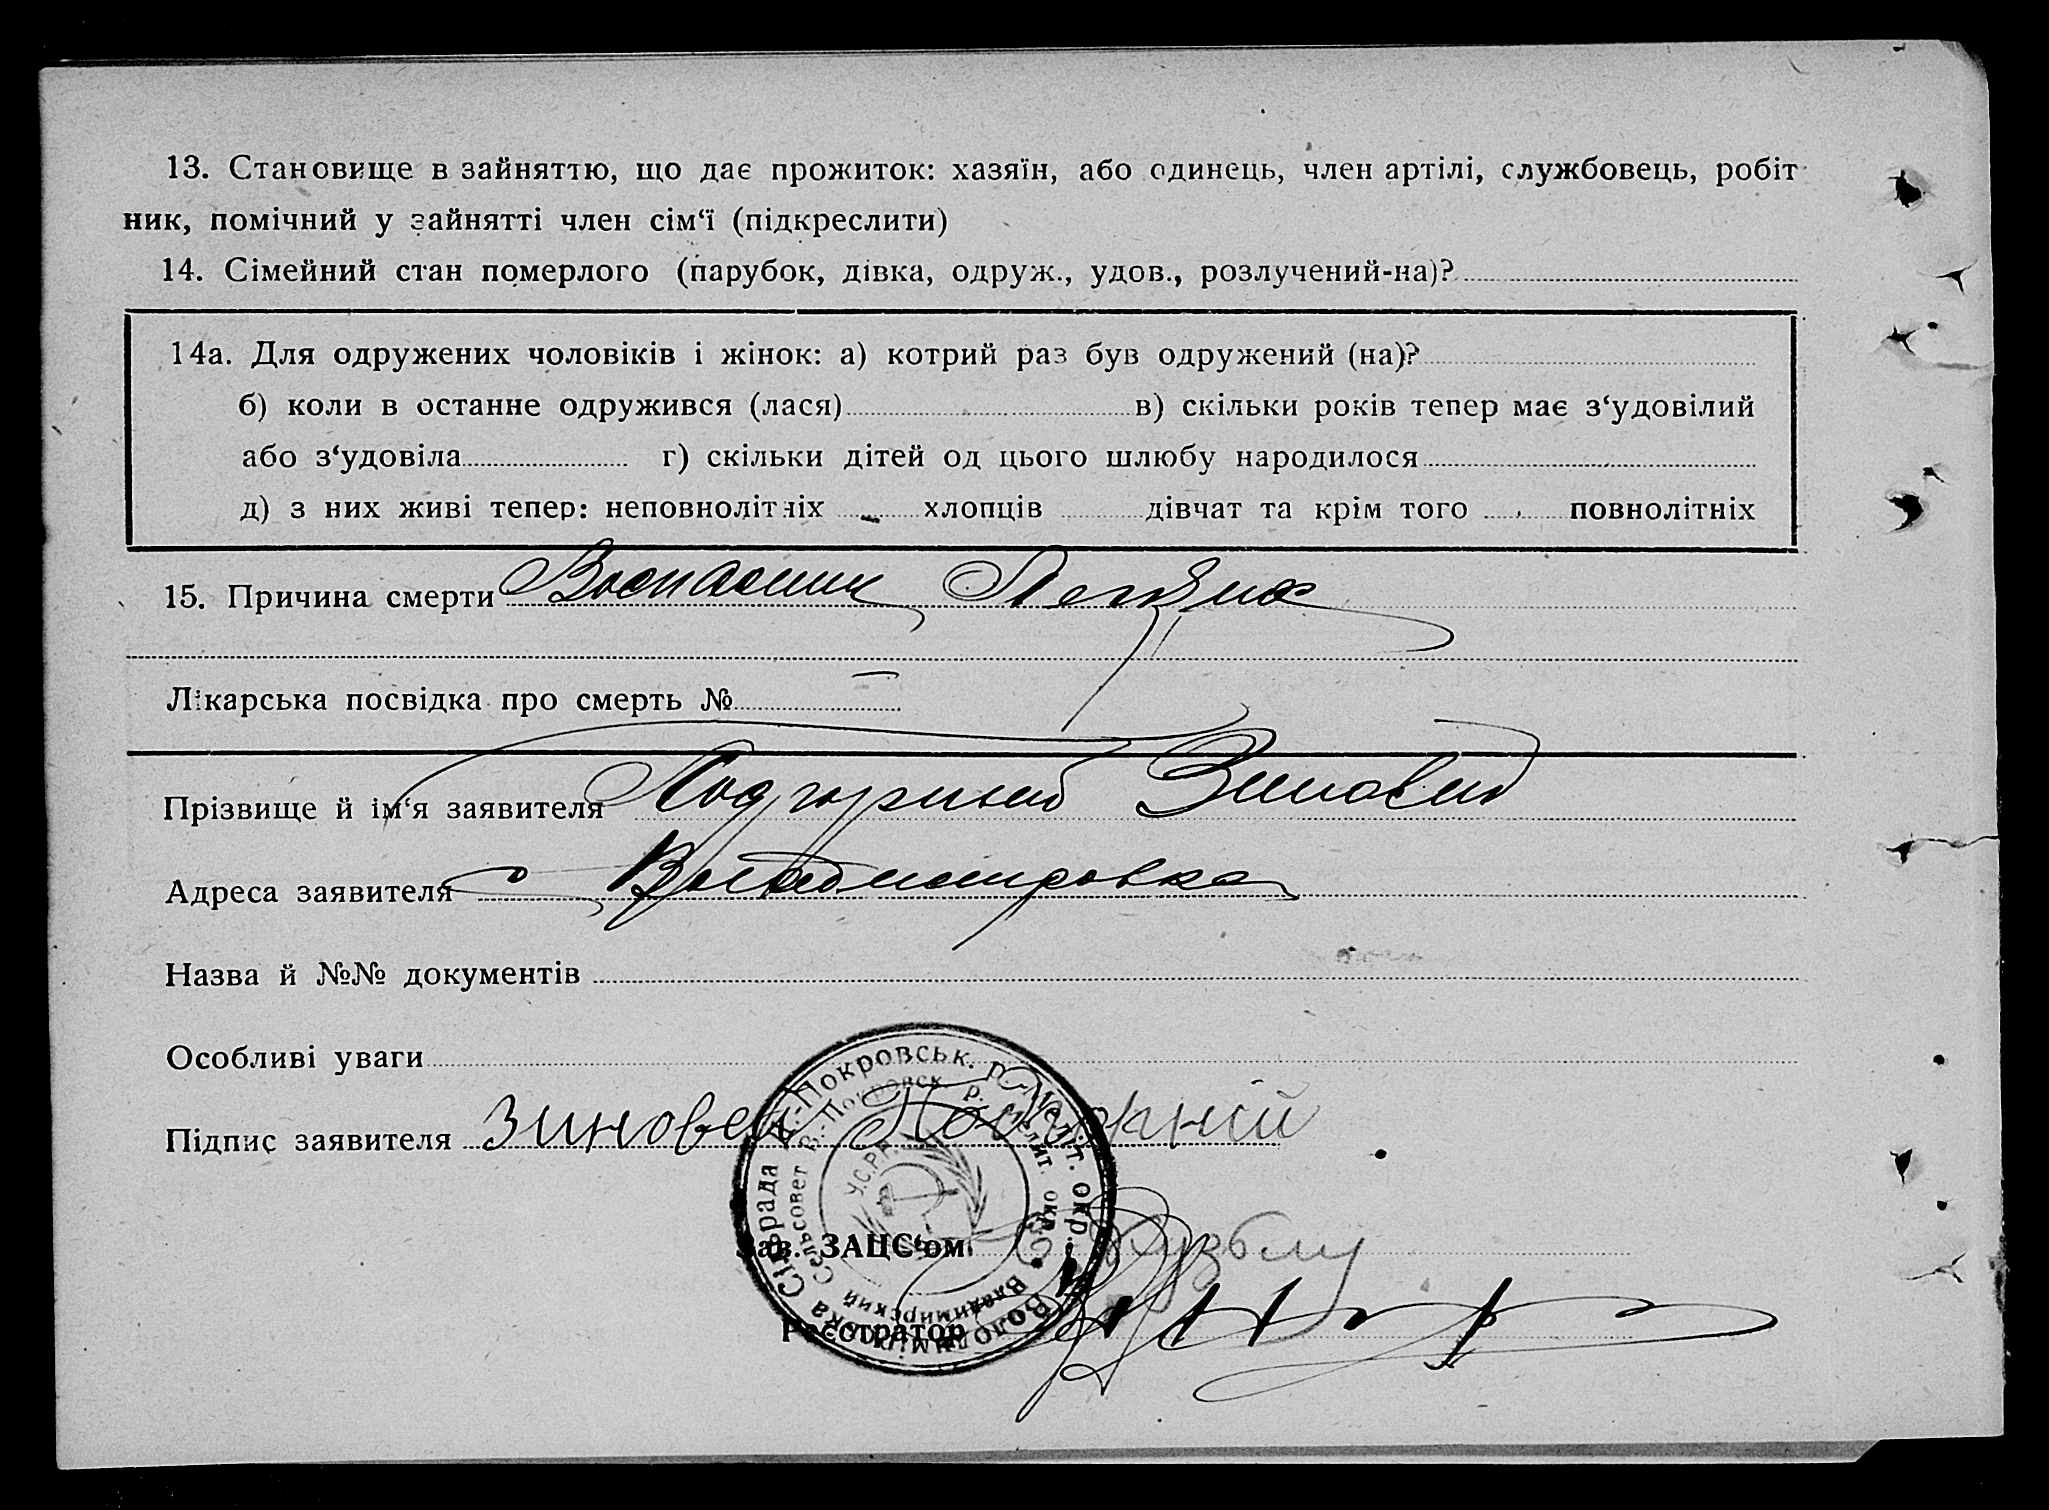 13. Становище в зайняттю, що дає прожиток: хазяїн, або одинець, член артілі, службовець, робіт
ник, помічний у зайнятті член сім‘ї (підкреслити)
14. Сімейний стан померлого (парубок, дівка, одруж., удов., розлучений-на)?
14а. Для одружених чоловіків і жінок: а) котрий раз був одружений (на)?
б) коли в останне одружився (лася) в) скільки років тепер має з‘удовілий
або з‘удовіла г) скільки дітей од цього шлюбу народилося
д) з них живі тепер: неповнолітніх хлопців дівчат та крім того повнолітніх
15. Причина смерти Воспаление Легких
Лікарська посвідка про смерть № —
Прізвище й ім‘я заявителя Подгорный Зиновий
Адреса заявителя с Владимировка
Назва й №№ документів
Особливі уваги
Підпис заявителя Зиновей Подгорній
Зав. ЗАЦС‘ом Кузьму
Реєстратор
Володимирівська Сільрада В.-Покровськ. р. Меліт. окр.
Владимирский Сельсовет В.-Покровск. р. Мелит. окр.
У.С.Р.Р.